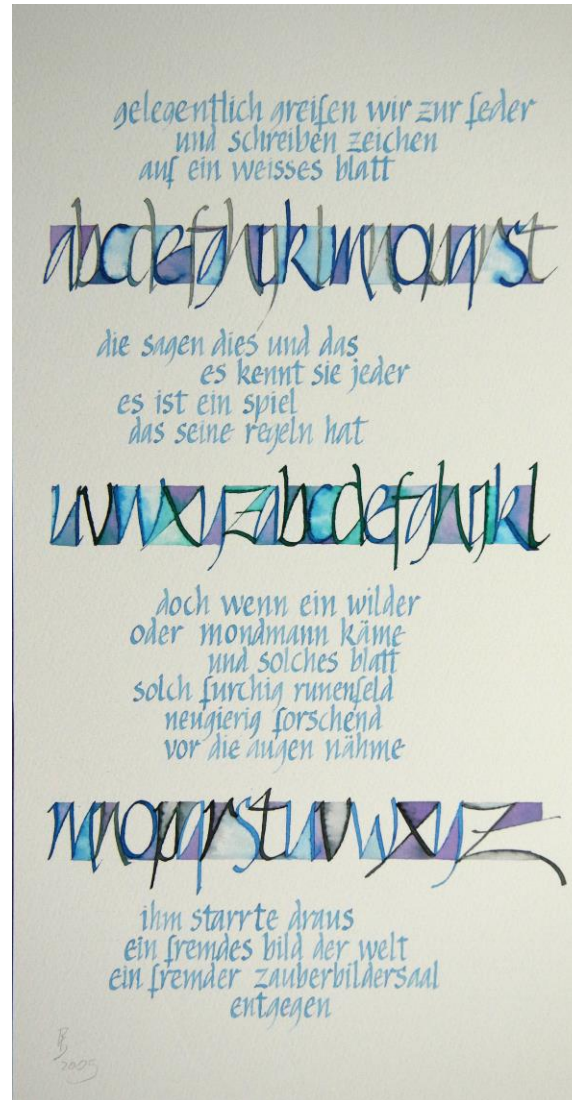 gelegentlich greifen wir zur feder
und schreiben zeichen
auf ein weisses blatt
abcdefghijklmnopqrst
die sagen dies und das
es kennt sie jeder
es ist ein spiel
das seine regeln hat
uvwxyzabcdefghijkl
doch wenn ein wilder
oder mondmann käme
und solches blatt
solch furchig runenfeld
neugierig forschend
vor die augen nähme
mnopqrstuvwxyz
ihm starrte draus
ein fremdes bild der welt
ein fremder zauberbildersaal
entgegen
2005